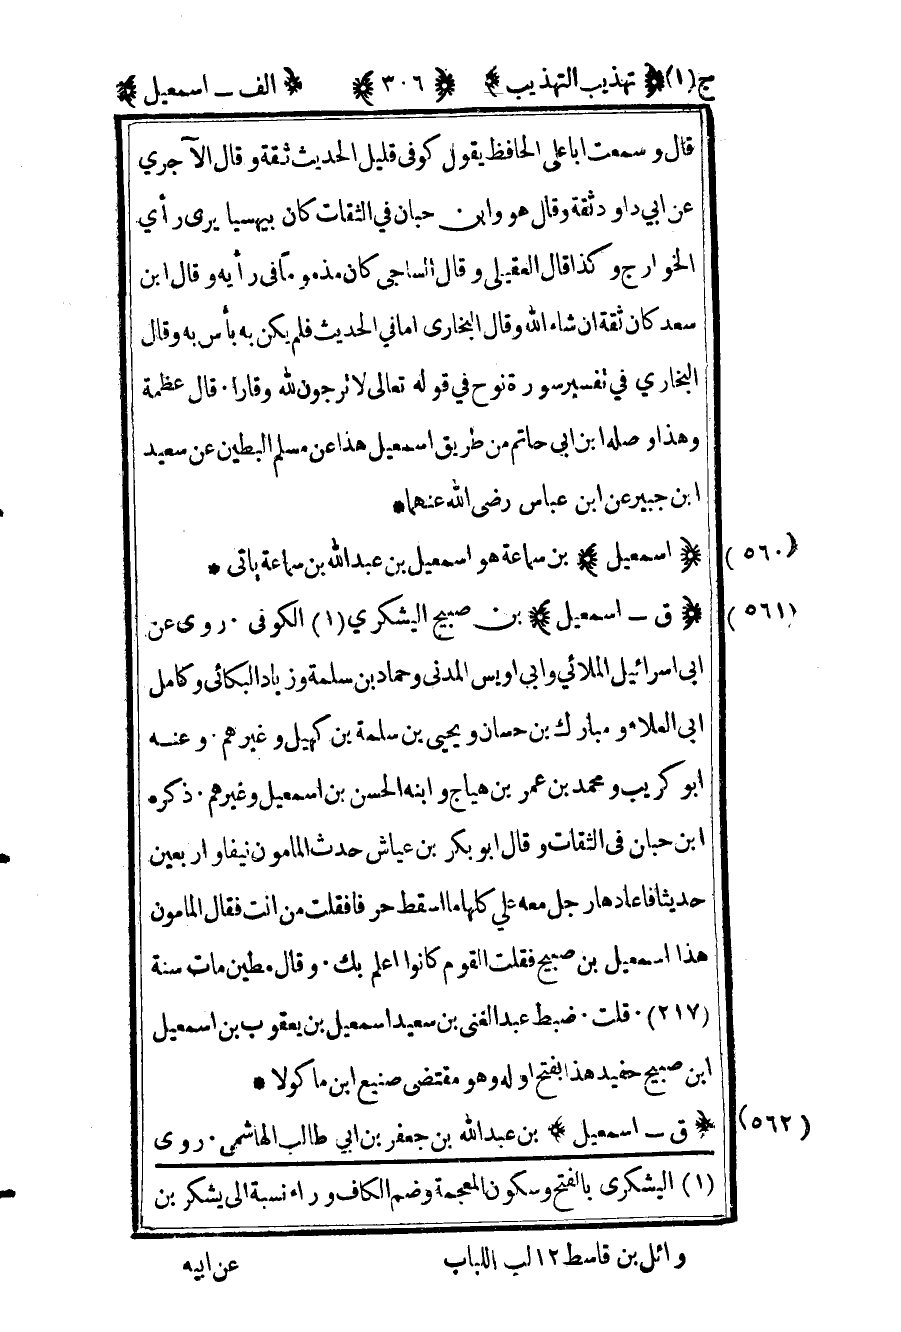 ج(١) ﴿ تهذيب التهذيب ﴾ ﴿ ٣٠٦ ﴾ ﴿ الف ـ اسمعيل ﴾
قال و سمعت ابا على الحافظ يقول كوفى قليل الحديث ثقة و قال الآجري
عن ابي داود ثقة وقال هو وابن حبان في الثقات كان بيهسيا يرى رأي
الخوارج و كذا قال العقيلي و قال الساجى كان مذموما فى رأيه و قال ابن
سعد كان ثقة ان شاء الله وقال البخارى اما في الحديث فلم يكن به بأس به وقال
البخاري في تفسير سورة نوح في قوله تعالى لا ترجون لله وقارا ٠ قال عظمة
وهذا وصله ابن ابي حاتم من طريق اسمعيل هذا عن مسلم البطين عن سعيد
ابن جبير عن ابن عباس رضى الله عنهما *
(٥٦٠) ﴿ اسمعيل ﴾ بن سماعة هو اسمعيل بن عبد الله بن سماعة ياتى *
(٥٦١) ﴿ ق ـ اسمعيل ﴾ بن صبيح اليشكري (١) الكوفى ٠ روى عن
ابى اسرائيل الملائي وابي اويس المدنى وحماد بن سلمة وزياد البكائى وكامل
ابى العلاء و مبارك بن حسان و يحيى بن سلمة بن كهيل و غيرهم ٠ و عنه
ابو كريب و محمد بن عمر بن هياج و ابنه الحسن بن اسمعيل وغيرهم ٠ ذكره
ابن حبان فى الثقات و قال ابو بكر بن عياش حدث المامون نيفا واربعين
حديثا فاعادها رجل معه علي كلها ما اسقط حرفا فقلت من انت فقال المامون
هذا اسمعيل بن صبيح فقلت القوم كانوا اعلم بك ٠ و قال مطين مات سنة
(٢١٧) ٠ قلت ٠ ضبط عبد الغنى بن سعيد اسمعيل بن يعقوب بن اسمعيل
ابن صبيح حفيد هذا بفتح اوله وهو مقتضى صنيع ابن ماكولا *
(٥٦٢) ﴿ ق ـ اسمعيل ﴾ بن عبد الله بن جعفر بن ابي طالب الهاشمى ٠ روى
(١) اليشكرى بالفتح وسكون المعجمة وضم الكاف و راء نسبة الى يشكر بن
وائل بن قاسط ١٢ لب اللباب
عن ابيه